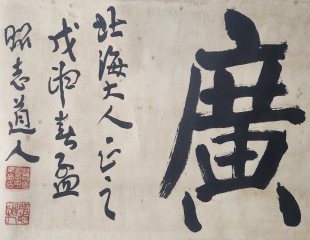 廣
北海大人正之
戊申春孟
昭志道人